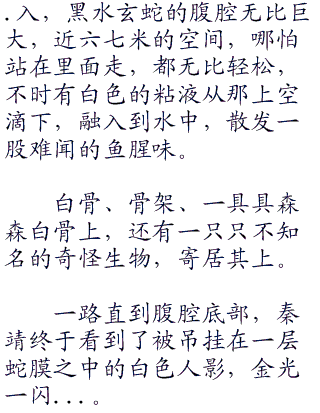 .入，黑水玄蛇的腹腔无比巨
大，近六七米的空间，哪怕
站在里面走，都无比轻松，
不时有白色的粘液从那上空
滴下，融入到水中，散发一
股难闻的鱼腥味。
白骨、骨架、一具具森
森白骨上，还有一只只不知
名的奇怪生物，寄居其上。
一路直到腹腔底部，秦
靖终于看到了被吊挂在一层
蛇膜之中的白色人影，金光
一闪...。